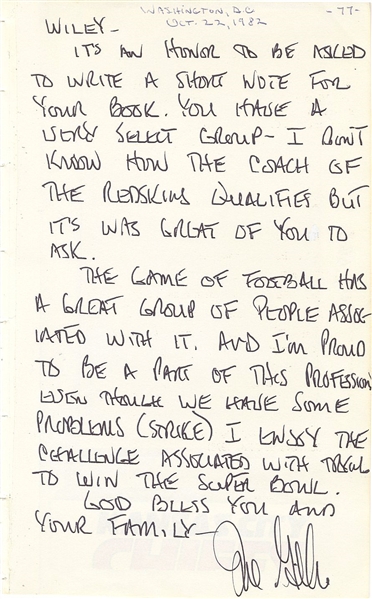 WASHINGTON, D.C. -77-
OCT. 22, 1982
WILEY-
IT'S AN HONOR TO BE ASKED
TO WRITE A SHORT NOTE FOR
YOUR BOOK. YOU HAVE A
VERY SELECT GROUP- I DON'T
KNOW HOW THE COACH OF
THE REDSKINS QUALIFIES BUT
IT'S WAS GREAT OF YOU TO
ASK.
THE GAME OF FOOTBALL HAS
A GREAT GROUP OF PEOPLE ASSOC-
IATED WITH IT. AND I'M PROUD
TO BE A PART OF THIS PROFESSION
EVEN THOUGH WE HAVE SOME
PROBLEMS (STRIKE) I ENJOY THE
CHALLENGE ASSOCIATED WITH TRYING
TO WIN THE SUPER BOWL.
GOD BLESS YOU AND
YOUR FAMILY-
Joe Gibbs